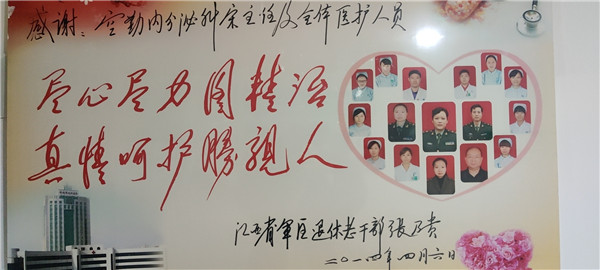 感谢：空勤内分泌科宋主任及全体医护人员
尽心尽力图精治
真情呵护勝親人
江西省军区退休老干部張乃贵
二〇一四年四月六日